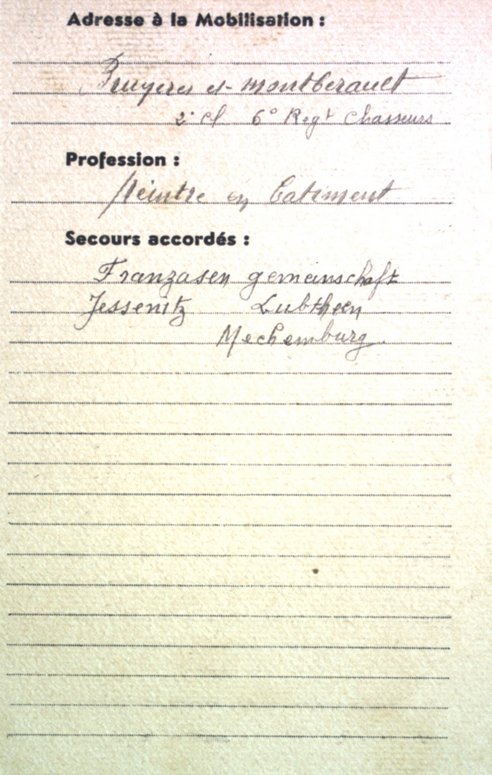 Adresse à la Mobilisation :
Bruyeres et montberault
2° cl 6° Regt Chasseurs
Profession :
peintre en batiment
Secours accordés :
Franzasen gemeinschaft
Jessenitz Lubtheen
Mechemburg